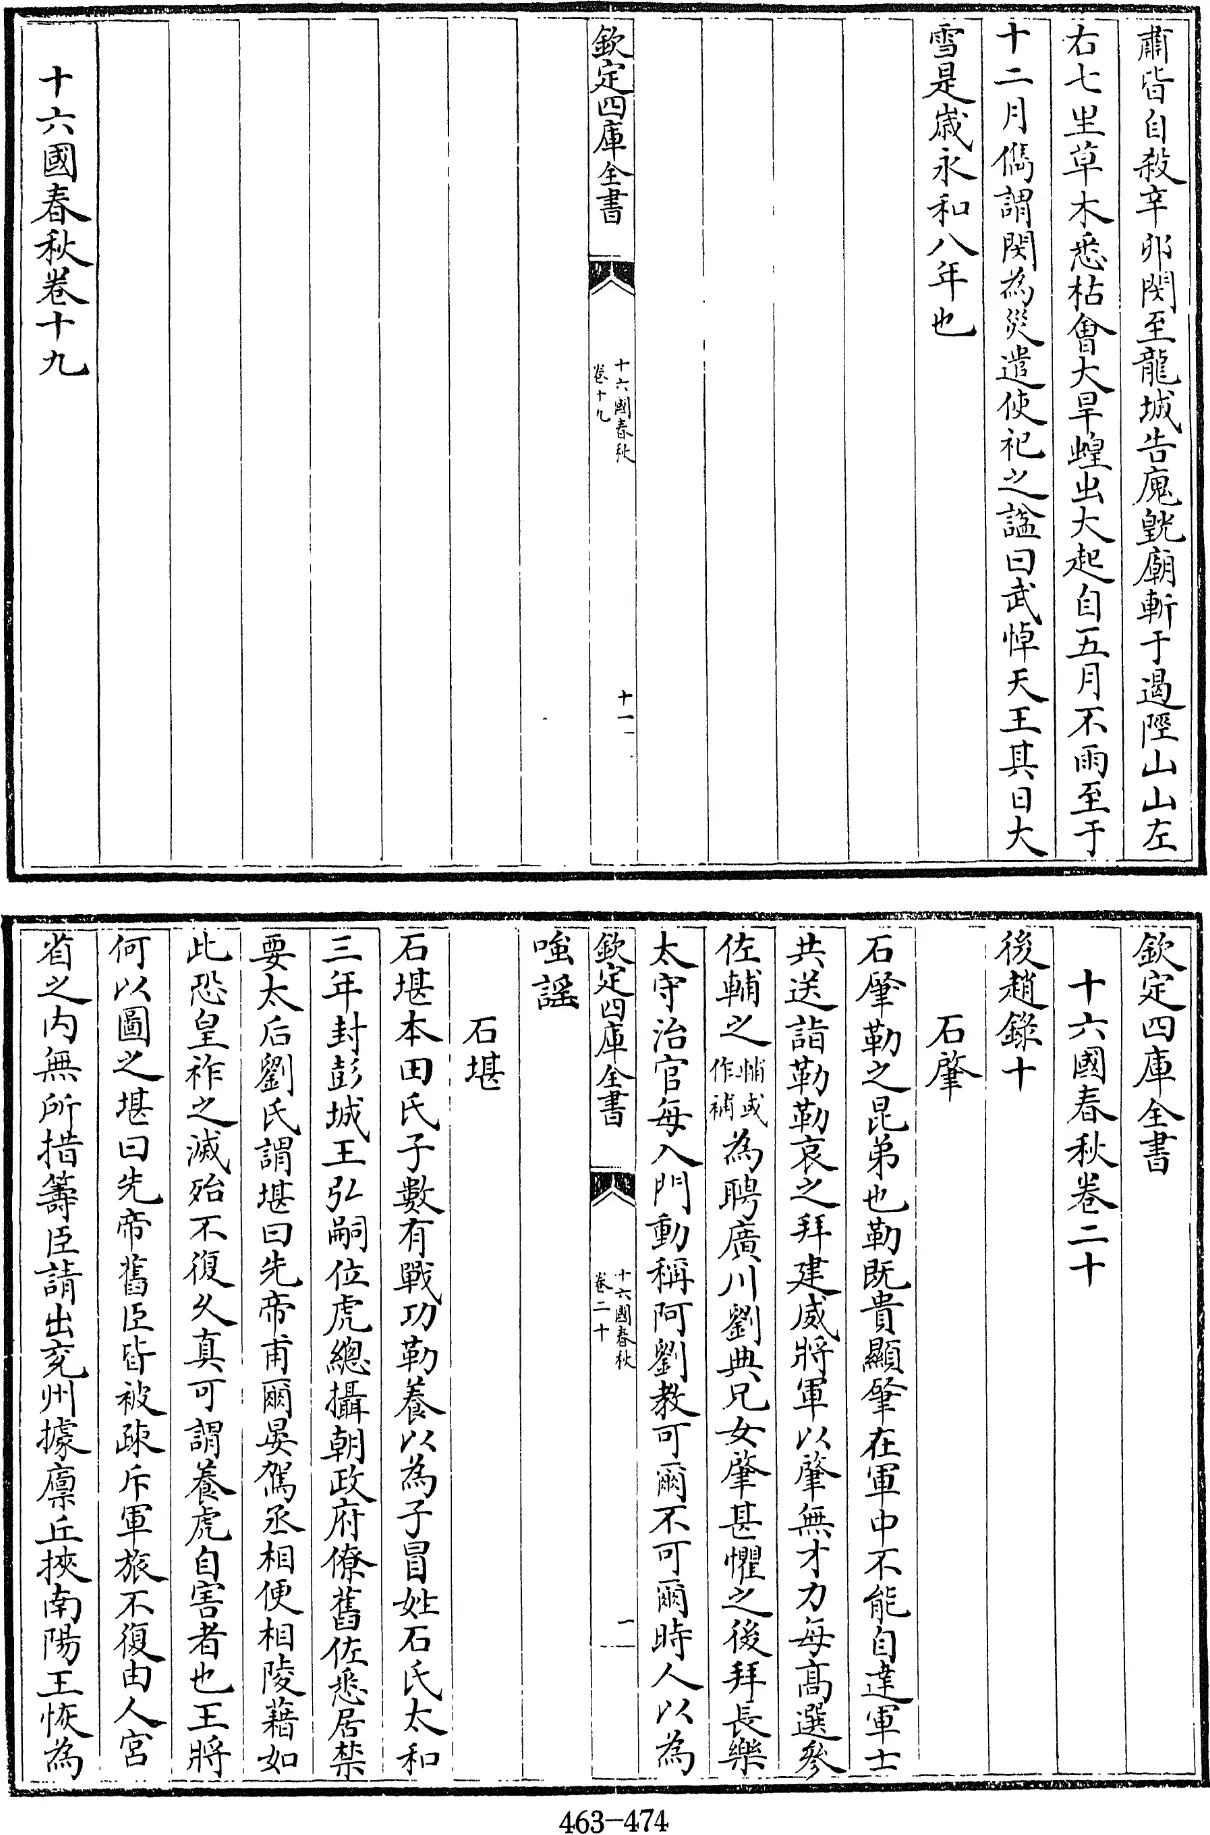 肅皆自殺辛夘閔至龍城告廆皝廟斬于遏陘山山左
右七里草木悉枯會大旱蝗出大起自五月不雨至于
十二月儁謂閔為災遣使祀之諡曰武悼天王其日大
雪是歳永和八年也
欽定四庫全書
十六國春秋
卷十九
十一
十六國春秋卷十九
欽定四庫全書
十六國春秋卷二十
後趙錄十
石肇
石肇勒之昆弟也勒既貴顯肇在軍中不能自達軍士
共送詣勒勒哀之拜建威將軍以肇無才力每髙選參
佐輔之輔或作補為聘廣川劉典兄女肇甚懼之後拜長樂
太守治官每入門動稱阿劉教可爾不可爾時人以為
欽定四庫全書
十六國春秋
卷二十
一
嗤謡
石堪
石堪本田氏子數有戰功勒養以為子冒姓石氏太和
三年封彭城王弘嗣位虎總攝朝政府僚舊佐悉居禁
要太后劉氏謂堪曰先帝甫爾晏駕丞相便相陵藉如
此恐皇祚之滅殆不復久真可謂養虎自害者也王將
何以圖之堪曰先帝舊臣皆被疎斥軍旅不復由人宮
省之内無所措籌臣請出兖州據廩丘挾南陽王恢為
463-474